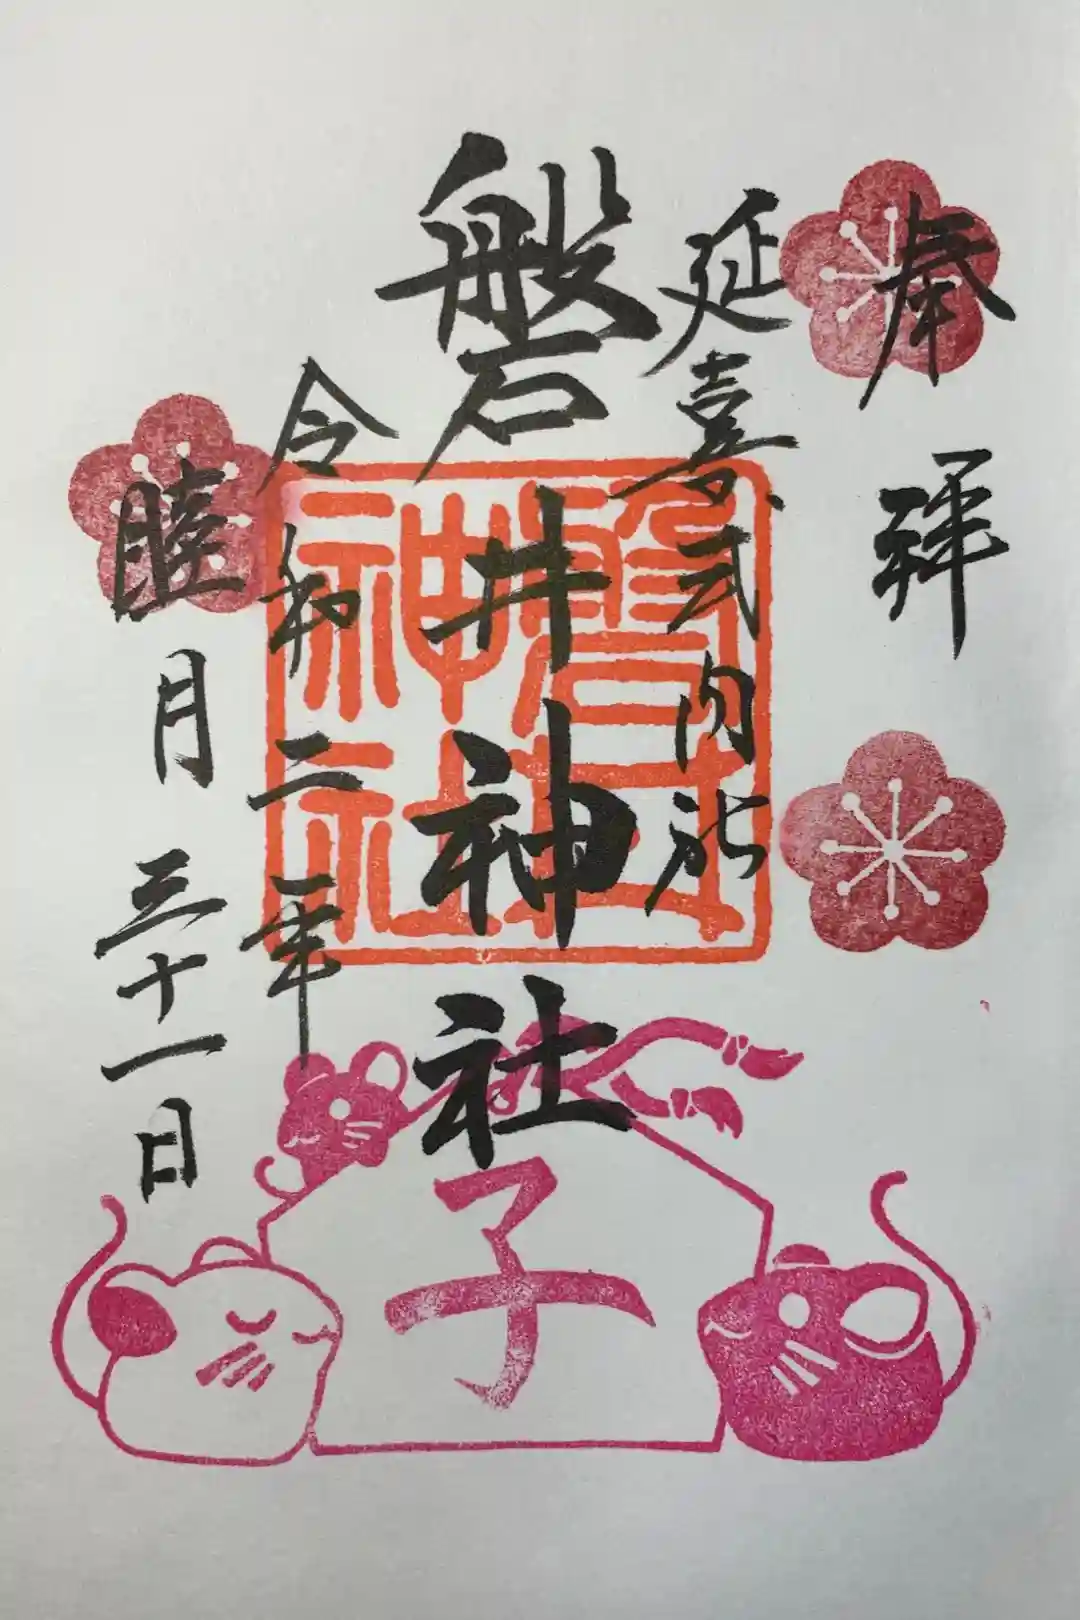 奉拝
延喜式内社
磐井神社
令和二年
睦月三十一日
磐井神社
子